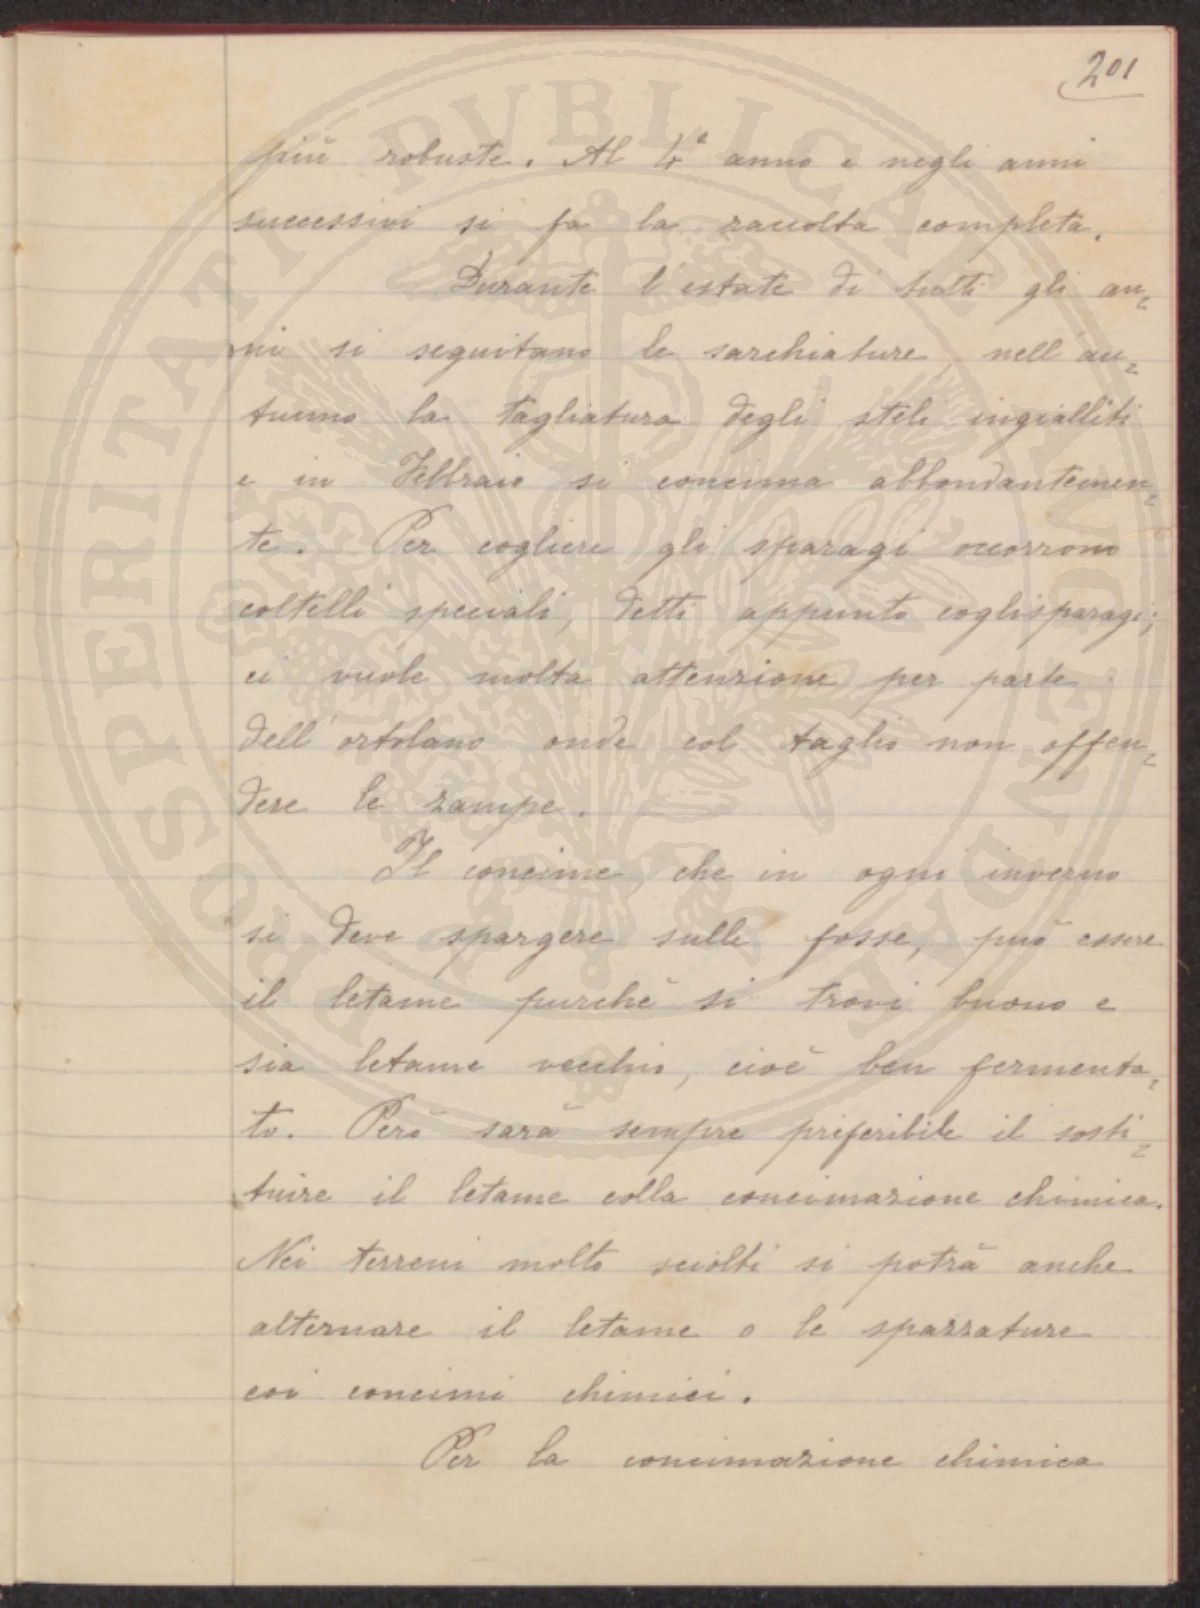 201
più robuste. Al 4° anno e negli anni
successivi si fa la raccolta completa.
Durante l'estate di tutti gli an=
ni si seguitano le sarchiature, nell'au=
tunno la tagliatura degli steli ingialliti
e in Febbraio si concima abbondantemen=
te. Per cogliere gli sparagi occorrono
coltelli speciali, detti appunto coglisparagi;
ci vuole molta attenzione per parte
dell'ortolano onde col taglio non offen=
dere le zampe.
Il concime, che in ogni inverno
si deve spargere sulle fosse, può essere
il letame purchè si trovi buono e
sia letame vecchio, cioè ben fermenta=
to. Però sarà sempre preferibile il sosti=
tuire il letame colla concimazione chimica.
Nei terreni molto sciolti si potrà anche
alternare il letame o le spazzature
coi concimi chimici.
Per la concimazione chimica
PROSPERITATI PVBLICAE PROVIDENDAE